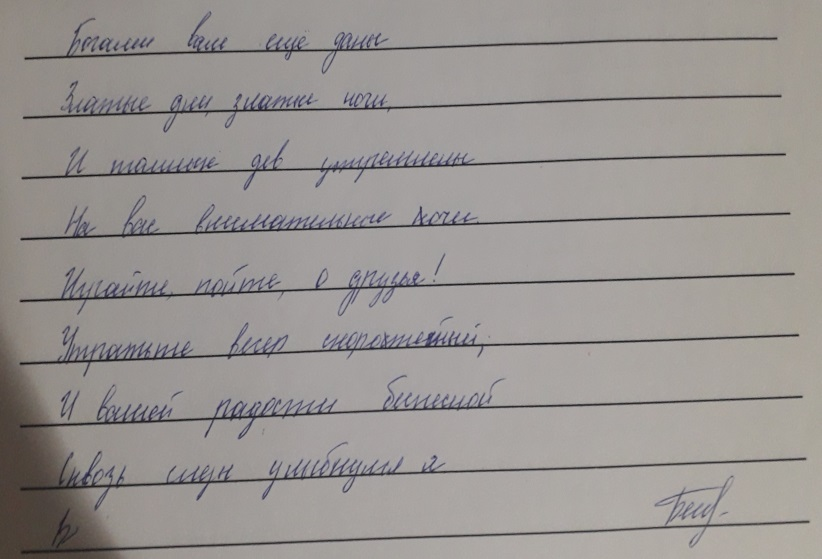 Богами вам еще даны
Златые дни, златые ночи,
И томных дев устремлены
На вас внимательные очи.
Играйте, пойте, о друзья!
Утратьте вечер скоротечный;
И вашей радости беспечной
Сквозь слезы улыбнулся я